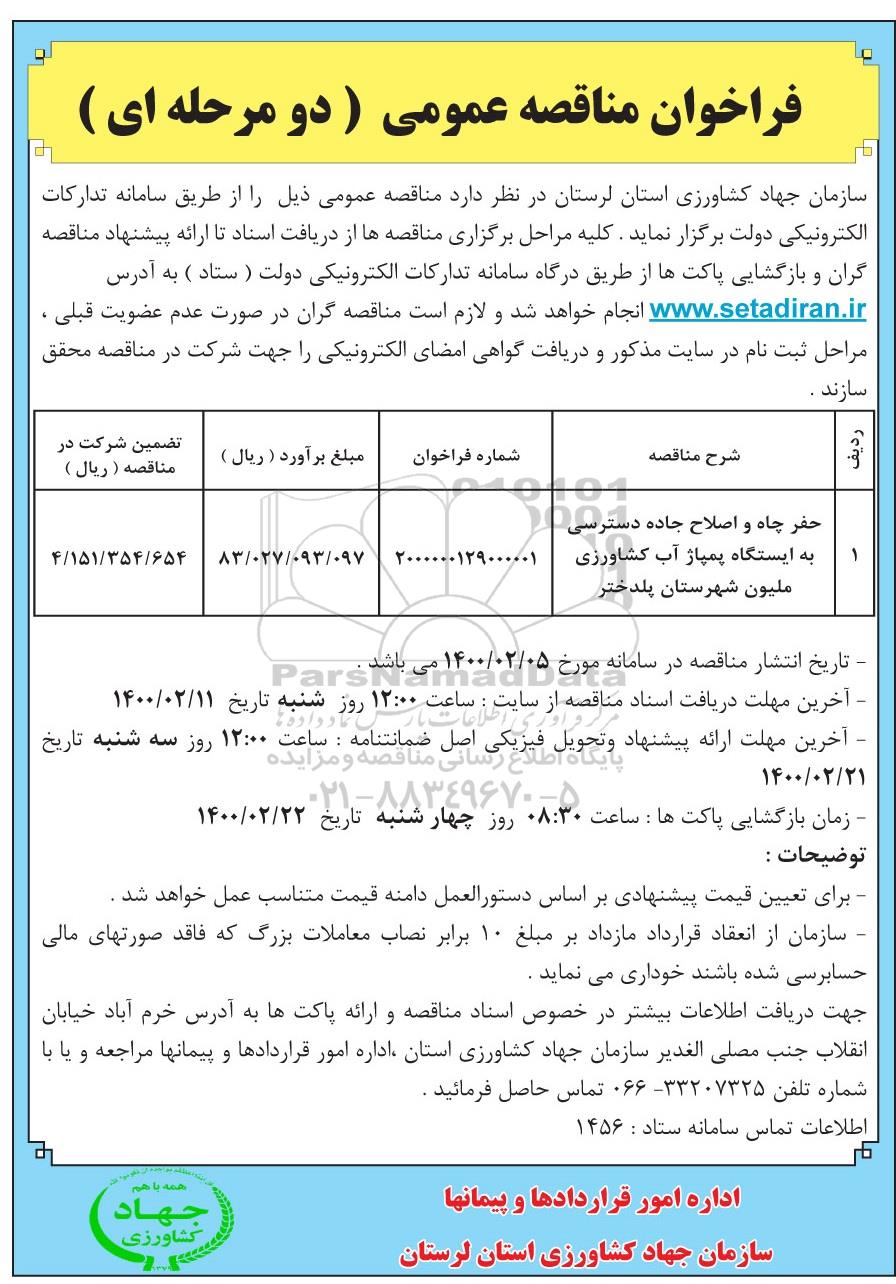 فراخوان مناقصه عمومی ( دو مرحله ای )
سازمان جهاد کشاورزی استان لرستان در نظر دارد مناقصه عمومی ذیل را از طریق سامانه تدارکات
الکترونیکی دولت برگزار نماید . کلیه مراحل برگزاری مناقصه ها از دریافت اسناد تا ارائه پیشنهاد مناقصه
گران و بازگشایی پاکت ها از طریق درگاه سامانه تدارکات الکترونیکی دولت ( ستاد ) به آدرس
www.setadiran.ir انجام خواهد شد و لازم است مناقصه گران در صورت عدم عضویت قبلی ،
مراحل ثبت نام در سایت مذکور و دریافت گواهی امضای الکترونیکی را جهت شرکت در مناقصه محقق
سازند .
ردیف
شرح مناقصه
شماره فراخوان
مبلغ برآورد ( ریال )
تضمین شرکت در
مناقصه ( ریال )
۱
حفر چاه و اصلاح جاده دسترسی
به ایستگاه پمپاژ آب کشاورزی
ملیون شهرستان پلدختر
۲۰۰۰۰۰۰۱۲۹۰۰۰۰۰۱
۸۳/۰۲۷/۰۹۳/۰۹۷
۴/۱۵۱/۳۵۴/۶۵۴
- تاریخ انتشار مناقصه در سامانه مورخ ۱۴۰۰/۰۲/۰۵ می باشد .
- آخرین مهلت دریافت اسناد مناقصه از سایت : ساعت ۱۲:۰۰ روز شنبه تاریخ ۱۴۰۰/۰۲/۱۱
- آخرین مهلت ارائه پیشنهاد وتحویل فیزیکی اصل ضمانتنامه : ساعت ۱۲:۰۰ روز سه شنبه تاریخ
۱۴۰۰/۰۲/۲۱
- زمان بازگشایی پاکت ها : ساعت ۰۸:۳۰ روز چهار شنبه تاریخ ۱۴۰۰/۰۲/۲۲
توضیحات :
- برای تعیین قیمت پیشنهادی بر اساس دستورالعمل دامنه قیمت متناسب عمل خواهد شد .
- سازمان از انعقاد قرارداد مازداد بر مبلغ ۱۰ برابر نصاب معاملات بزرگ که فاقد صورتهای مالی
حسابرسی شده باشند خوداری می نماید .
جهت دریافت اطلاعات بیشتر در خصوص اسناد مناقصه و ارائه پاکت ها به آدرس خرم آباد خیابان
انقلاب جنب مصلی الغدیر سازمان جهاد کشاورزی استان ،اداره امور قراردادها و پیمانها مراجعه و یا با
شماره تلفن ۳۳۲۰۷۳۲۵- ۰۶۶ تماس حاصل فرمائید .
اطلاعات تماس سامانه ستاد : ۱۴۵۶
اداره امور قراردادها و پیمانها
سازمان جهاد کشاورزی استان لرستان
همه با هم
جهاد
کشاورزی
۱۳۷۹
ParsNamadData
مرکز فرآوری اطلاعات پارس نماد داده ها
پایگاه اطلاع رسانی مناقصه و مزایده
۰۲۱-۸۸۳۴۹۶۷۰-۵